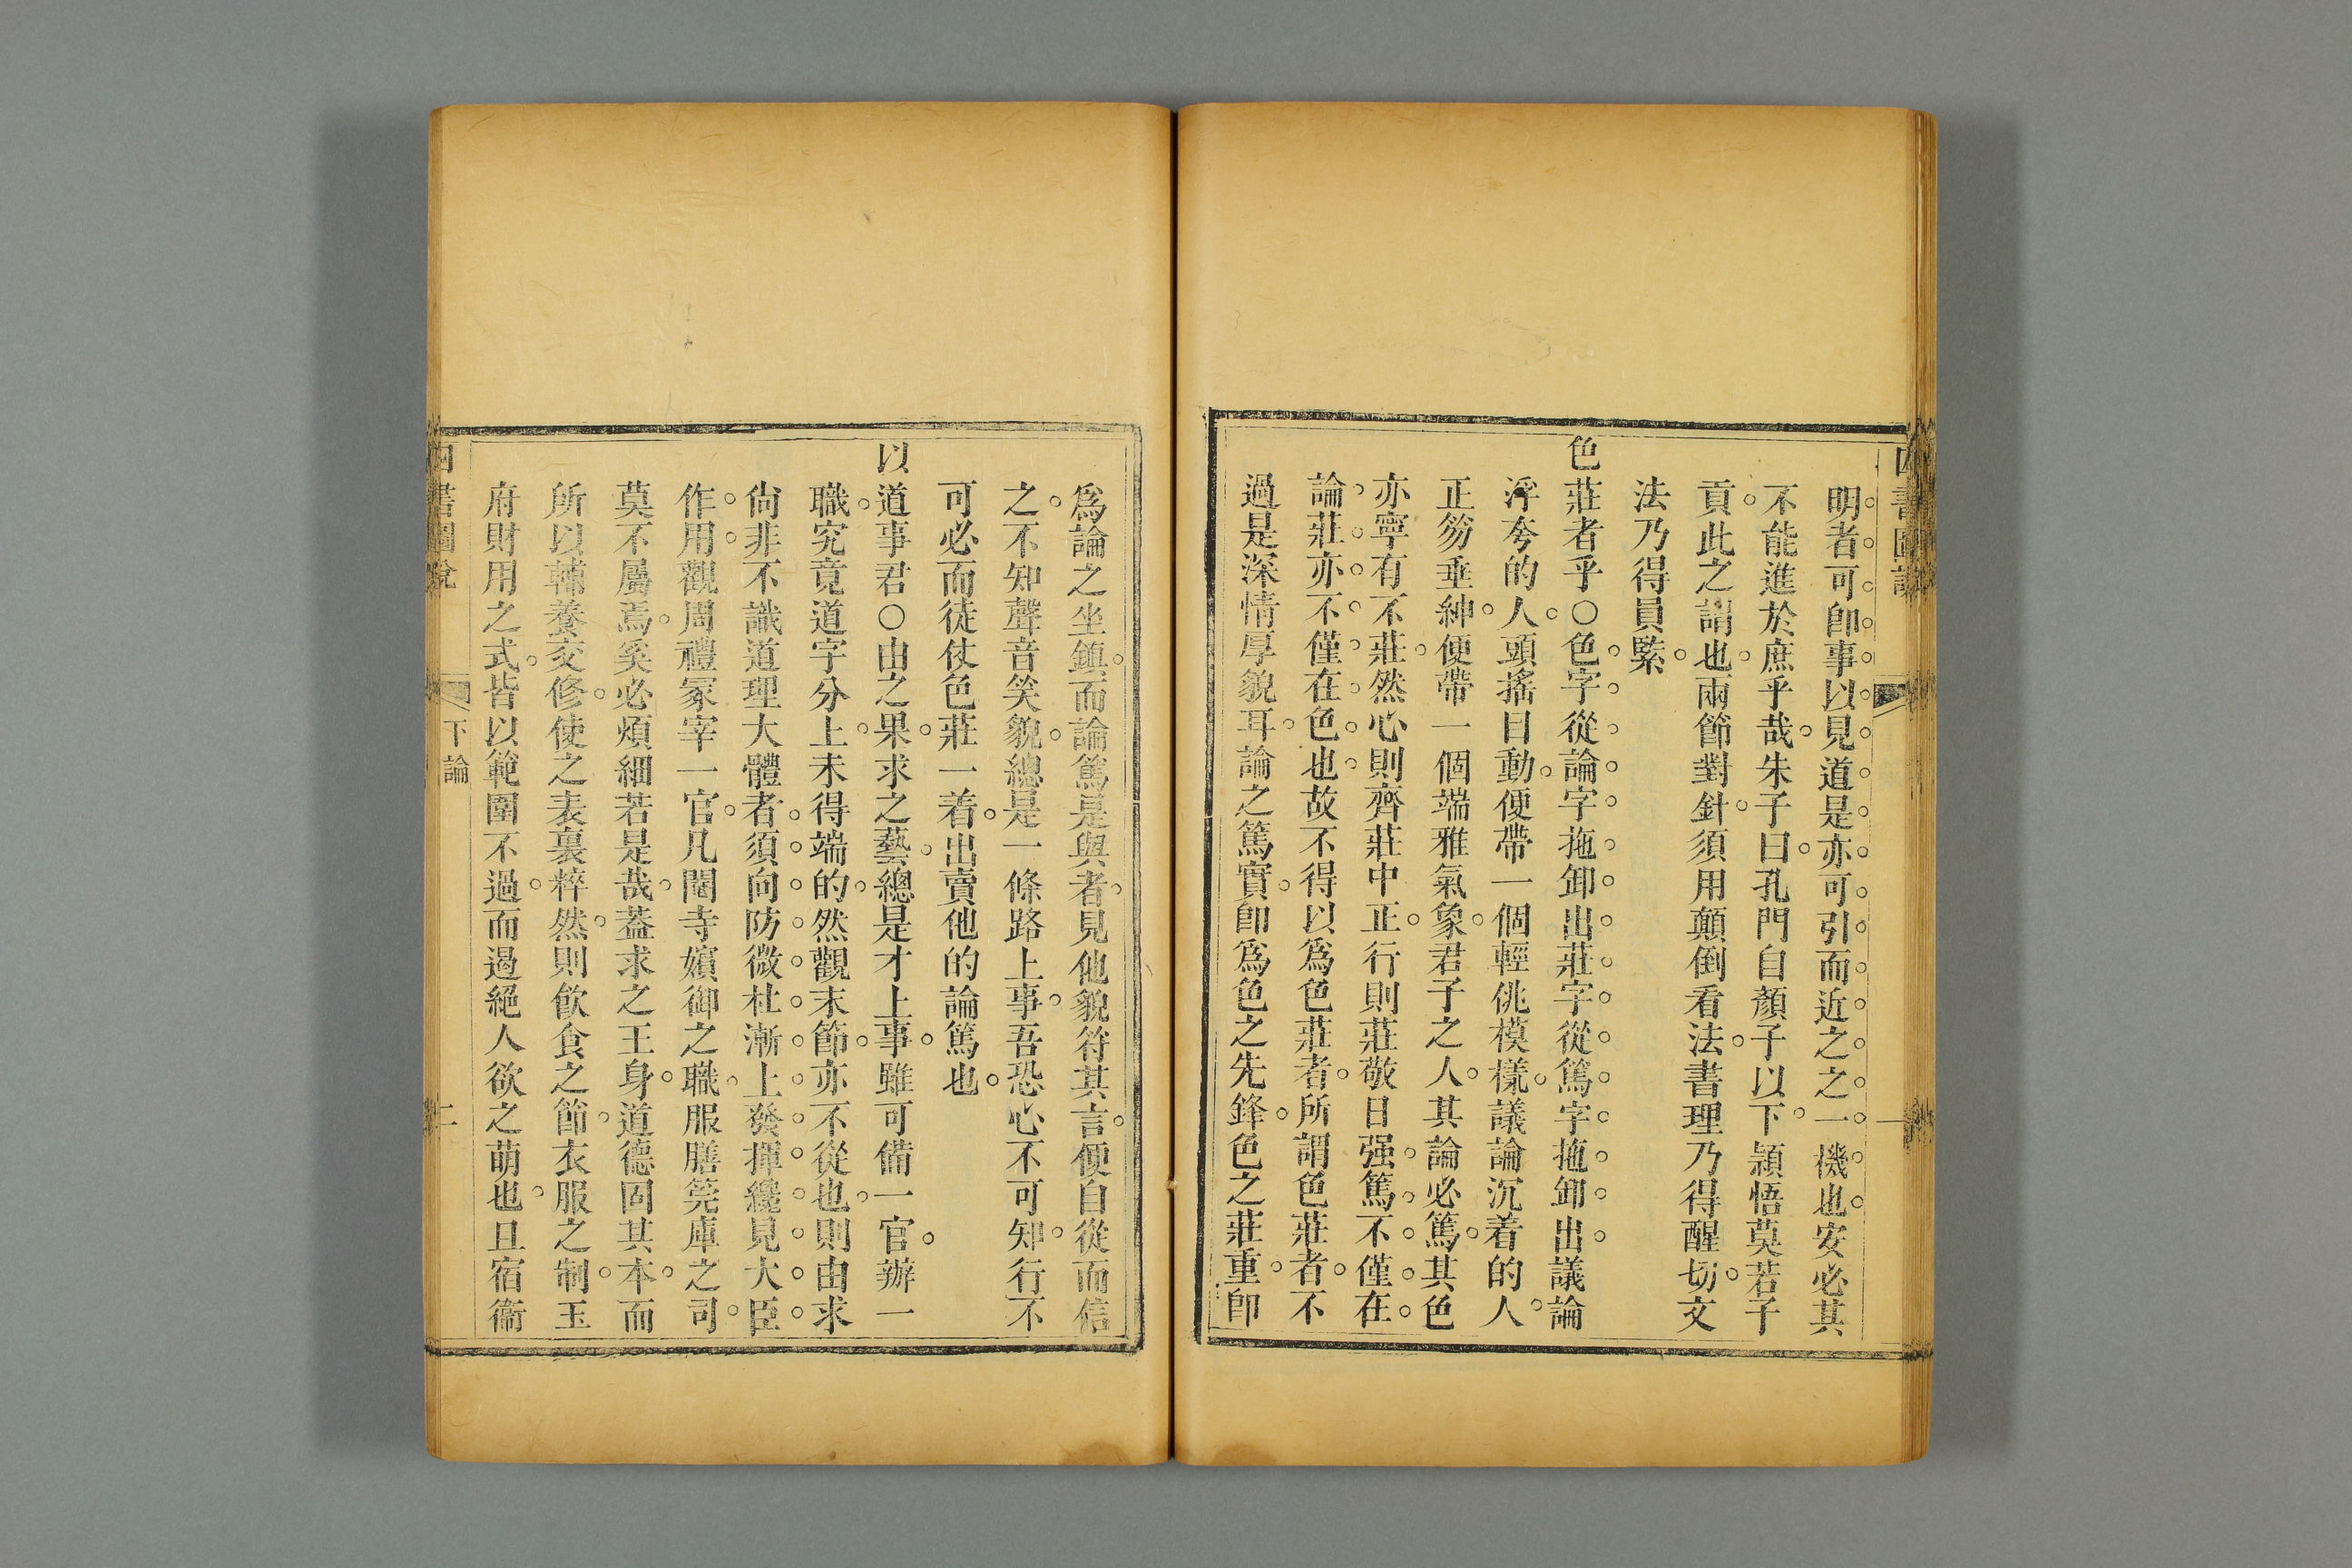 明者可卽事以見道是亦可引而近之之一機也安必其
不能進於庶乎哉朱子曰孔門自顏子以下穎悟莫若子
貢此之謂也兩節對針須用顚倒看法書理乃得醒切文
法乃得員緊
色莊者乎○色字從論字拖卸出莊字從篤字拖卸出議論
浮夸的人頭搖目動便帶一個輕佻模樣議論沉着的人
正笏垂紳便帶一個端雅氣象君子之人其論必篤其色
亦寧有不莊然心則齊莊中正行則莊敬日强篤不僅在
論莊亦不僅在色也故不得以爲色莊者所謂色莊者不
過是深情厚貌耳論之篤實卽爲色之先鋒色之莊重卽
爲論之坐鎮而論篤是與者見他貌符其言便白從而信
之不知聲音笑貌總是一條路上事吾恐心不可知行不
可必而徒仗色莊一着出賣他的論篤也
以道事君○由之果求之藝總是才上事雖可備一官辦一
職究竟道字分上未得端的然觀末節亦不從也則由求
尙非不識道理大體者須向防微杜漸上發揮纔見大臣
作用觀周禮冢宰一官凡閽寺嬪御之職服膳筦庫之司
莫不屬焉奚必煩細若是哉蓋求之王身道德固其本而
所以輔養交修使之表裏粹然則飮食之節衣服之制玉
府財用之式皆以範圍不過而遏絕人欲之萌也且宿衞
四書圖說
下論
二